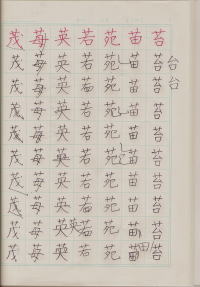 茂 苺 英 若 苑 苗 苔
茂 苺 英 若 苑 苗 苔 台
茂 苺 英 若 苑 苗 苔 台
茂 苺 英 若 苑 苗 苔
茂 苺 英 若 苑 苗 苔
茂 苺 英 若 苑 苗 苔
茂 苺 英 若 苑 苗 苔
茂 苺 英 若 苑 苗 苔
茂 苺 英 英 若 苑 苗 苔
茂 苺 英 若 苑 苗 田 苔